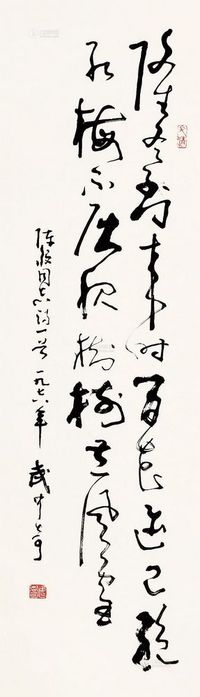 隆冬到来时百花迹已绝
红梅不屈服树树立风雪
陈毅同志诗一首 一九七六年 武中奇